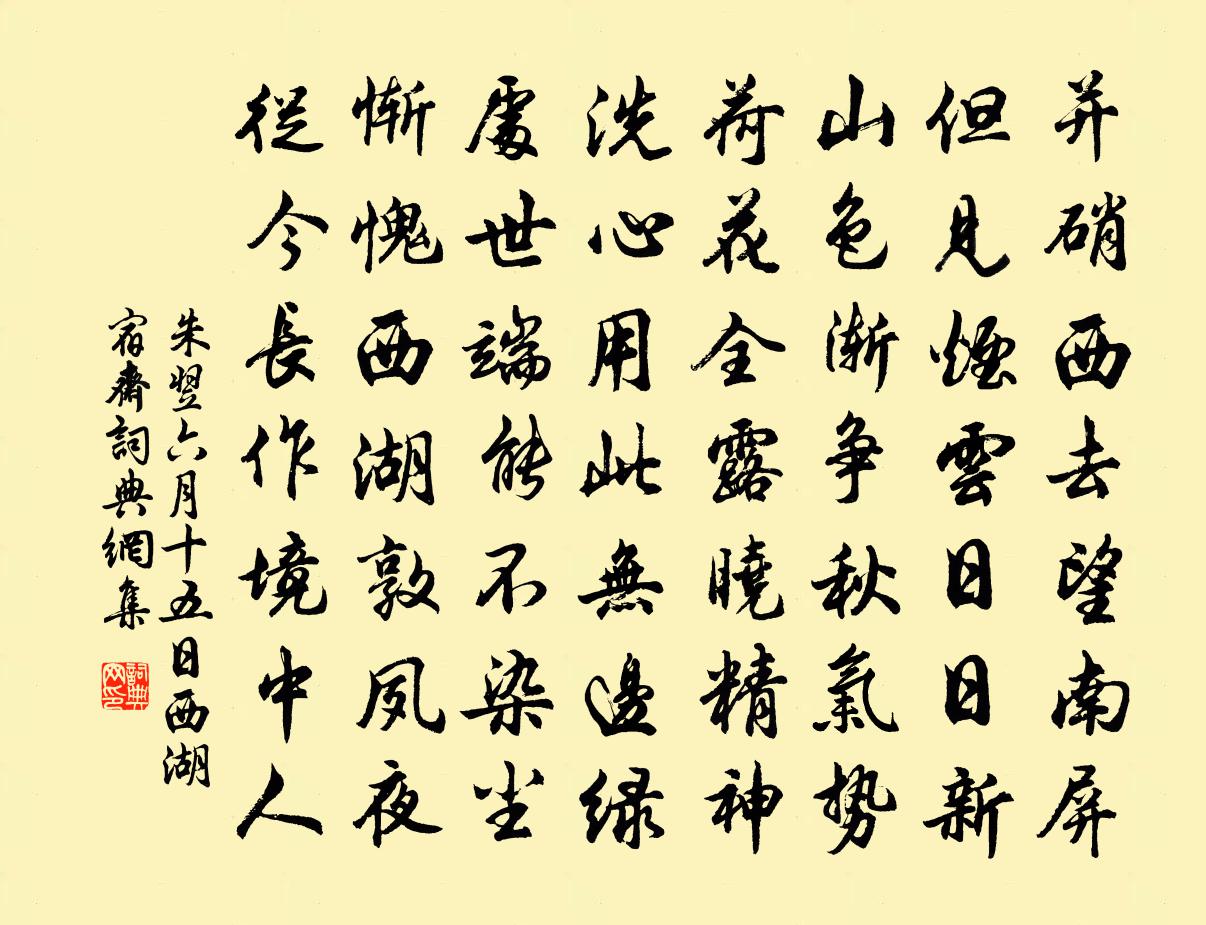 并硝西去望南屏
但見煙雲日日新
山色漸争秋氣勢
荷花全露曉精神
洗心用此無邊緑
處世端能不染尘
慚愧西湖敦夙夜
從今長作境中人
朱翌六月十五日西湖
宿齋詞典網集
詞典网印